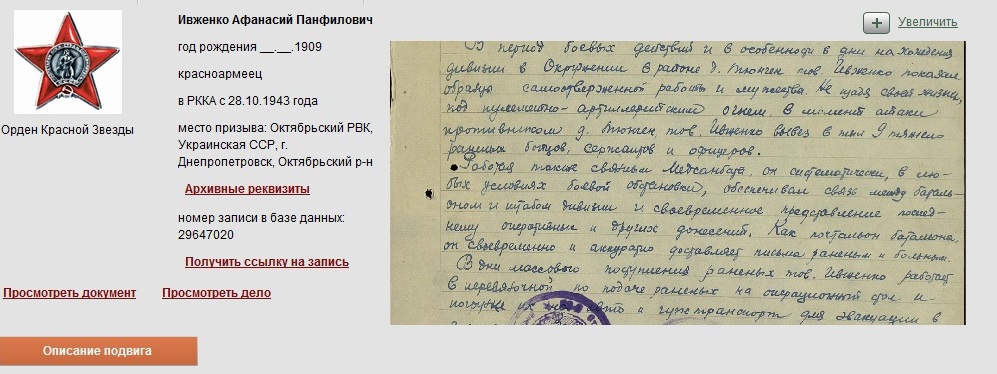 Орден Красной Звезды
Ивженко Афанасий Панфилович
год рождения __.__.1909
красноармеец
в РККА с 28.10.1943 года
место призыва: Октябрьский РВК,
Украинская ССР, г.
Днепропетровск, Октябрьский р-н
Архивные реквизиты
номер записи в базе данных:
29647020
Получить ссылку на запись
Просмотреть документ
Просмотреть дело
Описание подвига
Увеличить
В период боевых действий и в особенности в дни нахождения
дивизии в Окружении в районе д. тов. Ивженко показал
образцы самоотверженной работы и мужества. Не щадя своей жизни,
под пулеметно-артиллерийским огнем, в момент атаки
противником д. тов. Ивженко вывез в тыл 9 тяжело
раненых бойцов, сержантов и офицеров.
Работая также связным Медсанбата, он систематически, в лю-
бых условиях боевой обстановки, обеспечивал связь между баталь-
оном и штабом дивизии и своевременное представление послед-
нему оперативных и других донесений. Как почтальон батальона,
он своевременно и аккуратно доставляет письма раненым и больным.
В дни массового поступления раненых тов. Ивженко работает
в перевязочной по подаче раненых на операционный стол и
погрузке их на авто и гужтранспорт для эвакуации в